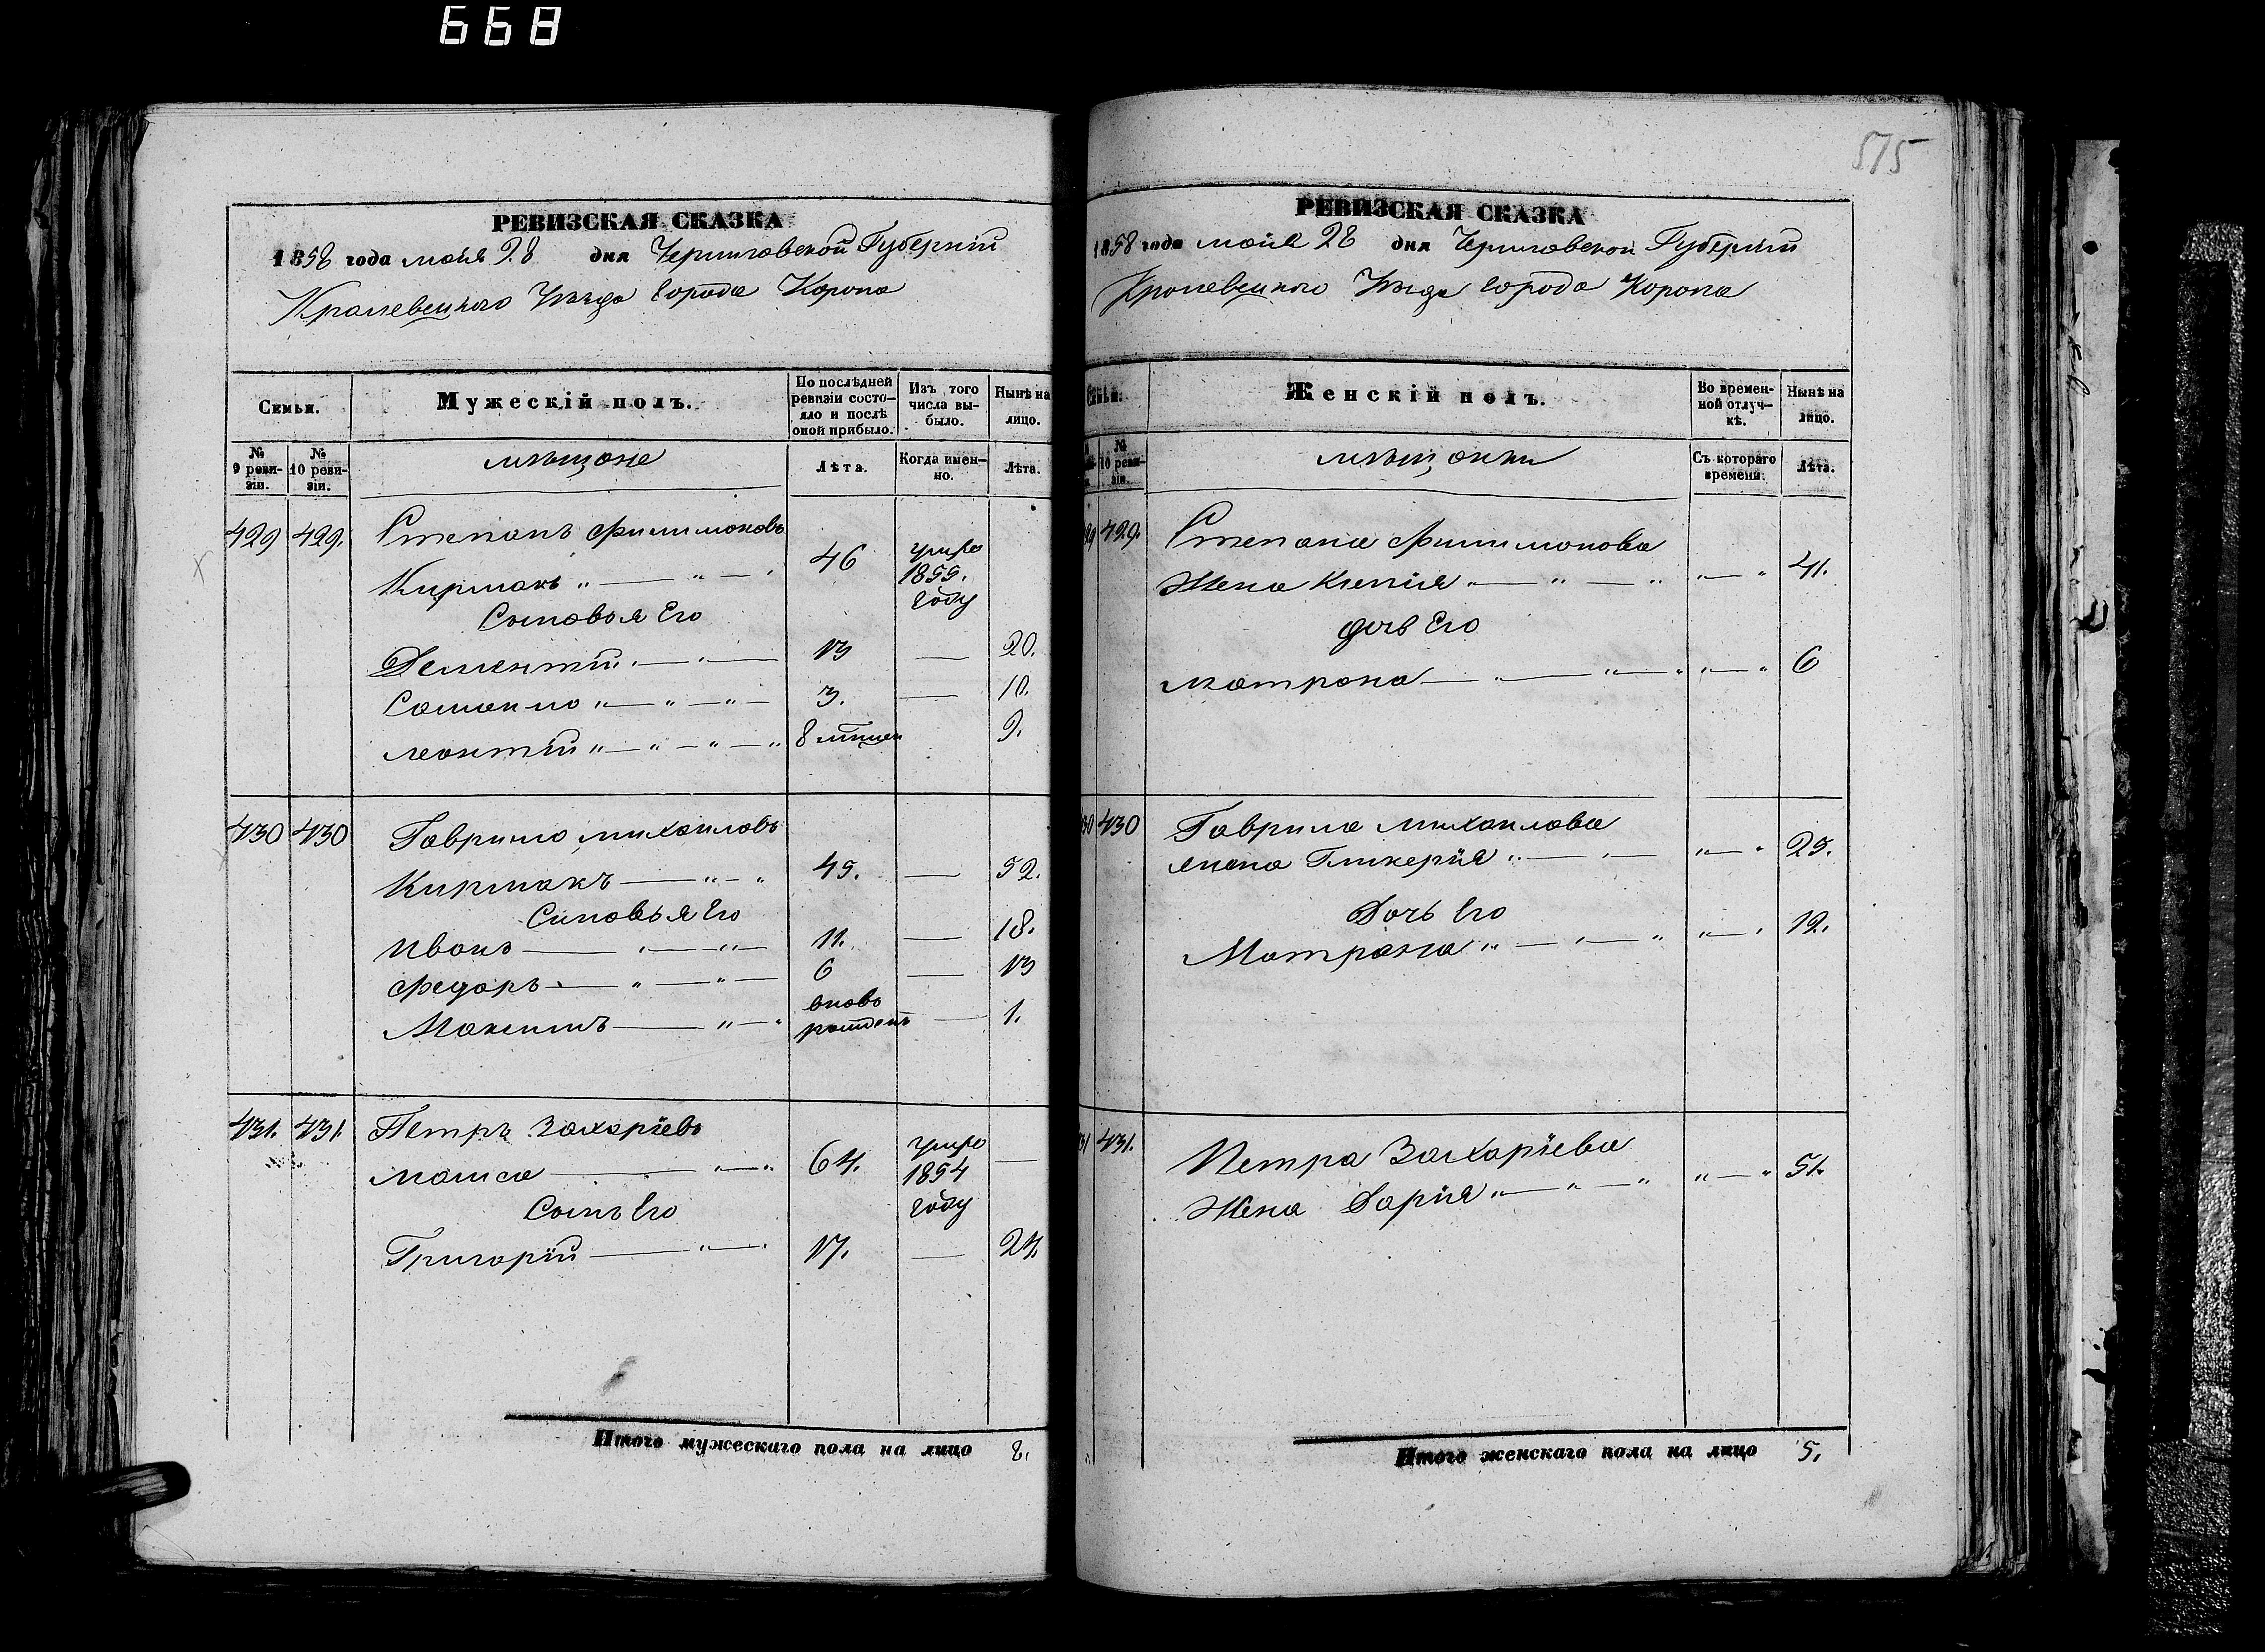 668
РЕВИЗСКАЯ СКАЗКА
1858 года мая 28 дня Черниговской Губерніи
Кролевецкого Уѣзда Города Коропа
Семьи.
Мужескій полъ.
По послѣдней ревизіи состояло и послѣ оной прибыло.
Изъ того числа выбыло.
Нынѣ на лицо.
№ 9 ревизіи.
№ 10 ревизіи.
мѣщане
Лѣта.
Когда именно.
Лѣта.
429 429. Степанъ Филимоновъ
Кирмакъ „ — „ — „ 46 умре 1855. году
Сыновья Его
Дементій „ — „ — 13 — 20.
Самойло „ — „ — „ — 3. — 10.
Леонтій „ — „ — „ — „ 8 9.
430 430 Гаврило Михаиловъ
Кирмакъ — „ — „ 45. — 52.
Сыновья Его
Иванъ — „ — „ — 11. — 18.
Федоръ — „ — „ — 6 — 13
Максимъ — „ — „ вновь рожденъ — 1.
431. 431. Петръ Захаріевъ
— „ — „ 64. умре 1854 году —
Сынъ Его
Григорій — „ — „ 17. — 24.
Итого мужескаго пола на лицо 8.
575
РЕВИЗСКАЯ СКАЗКА
1858 года мая 28 дня Черниговской Губерніи
Кролевецкого Уѣзда Города Коропа
Семьи.
Женскій полъ.
Во временной отлучкѣ.
Нынѣ на лицо.
№ 10 ревизіи.
мѣщанки
Съ котораго времени.
Лѣта.
29 429. Степана Филимонова
Жена Ксенія „ — „ — „ „ — „ 41.
дочь Его
Матрона — „ — „ — „ „ — „ 6
30 430 Гаврила Михаилова
жена Гликерія „ — „ — „ — „ 25.
Дочь Его
Матрона „ — „ — „ „ — „ 12.
31 431. Петра Захаріева
Жена Дарія „ — „ — „ „ — „ 51.
Итого женскаго пола на лицо 5.